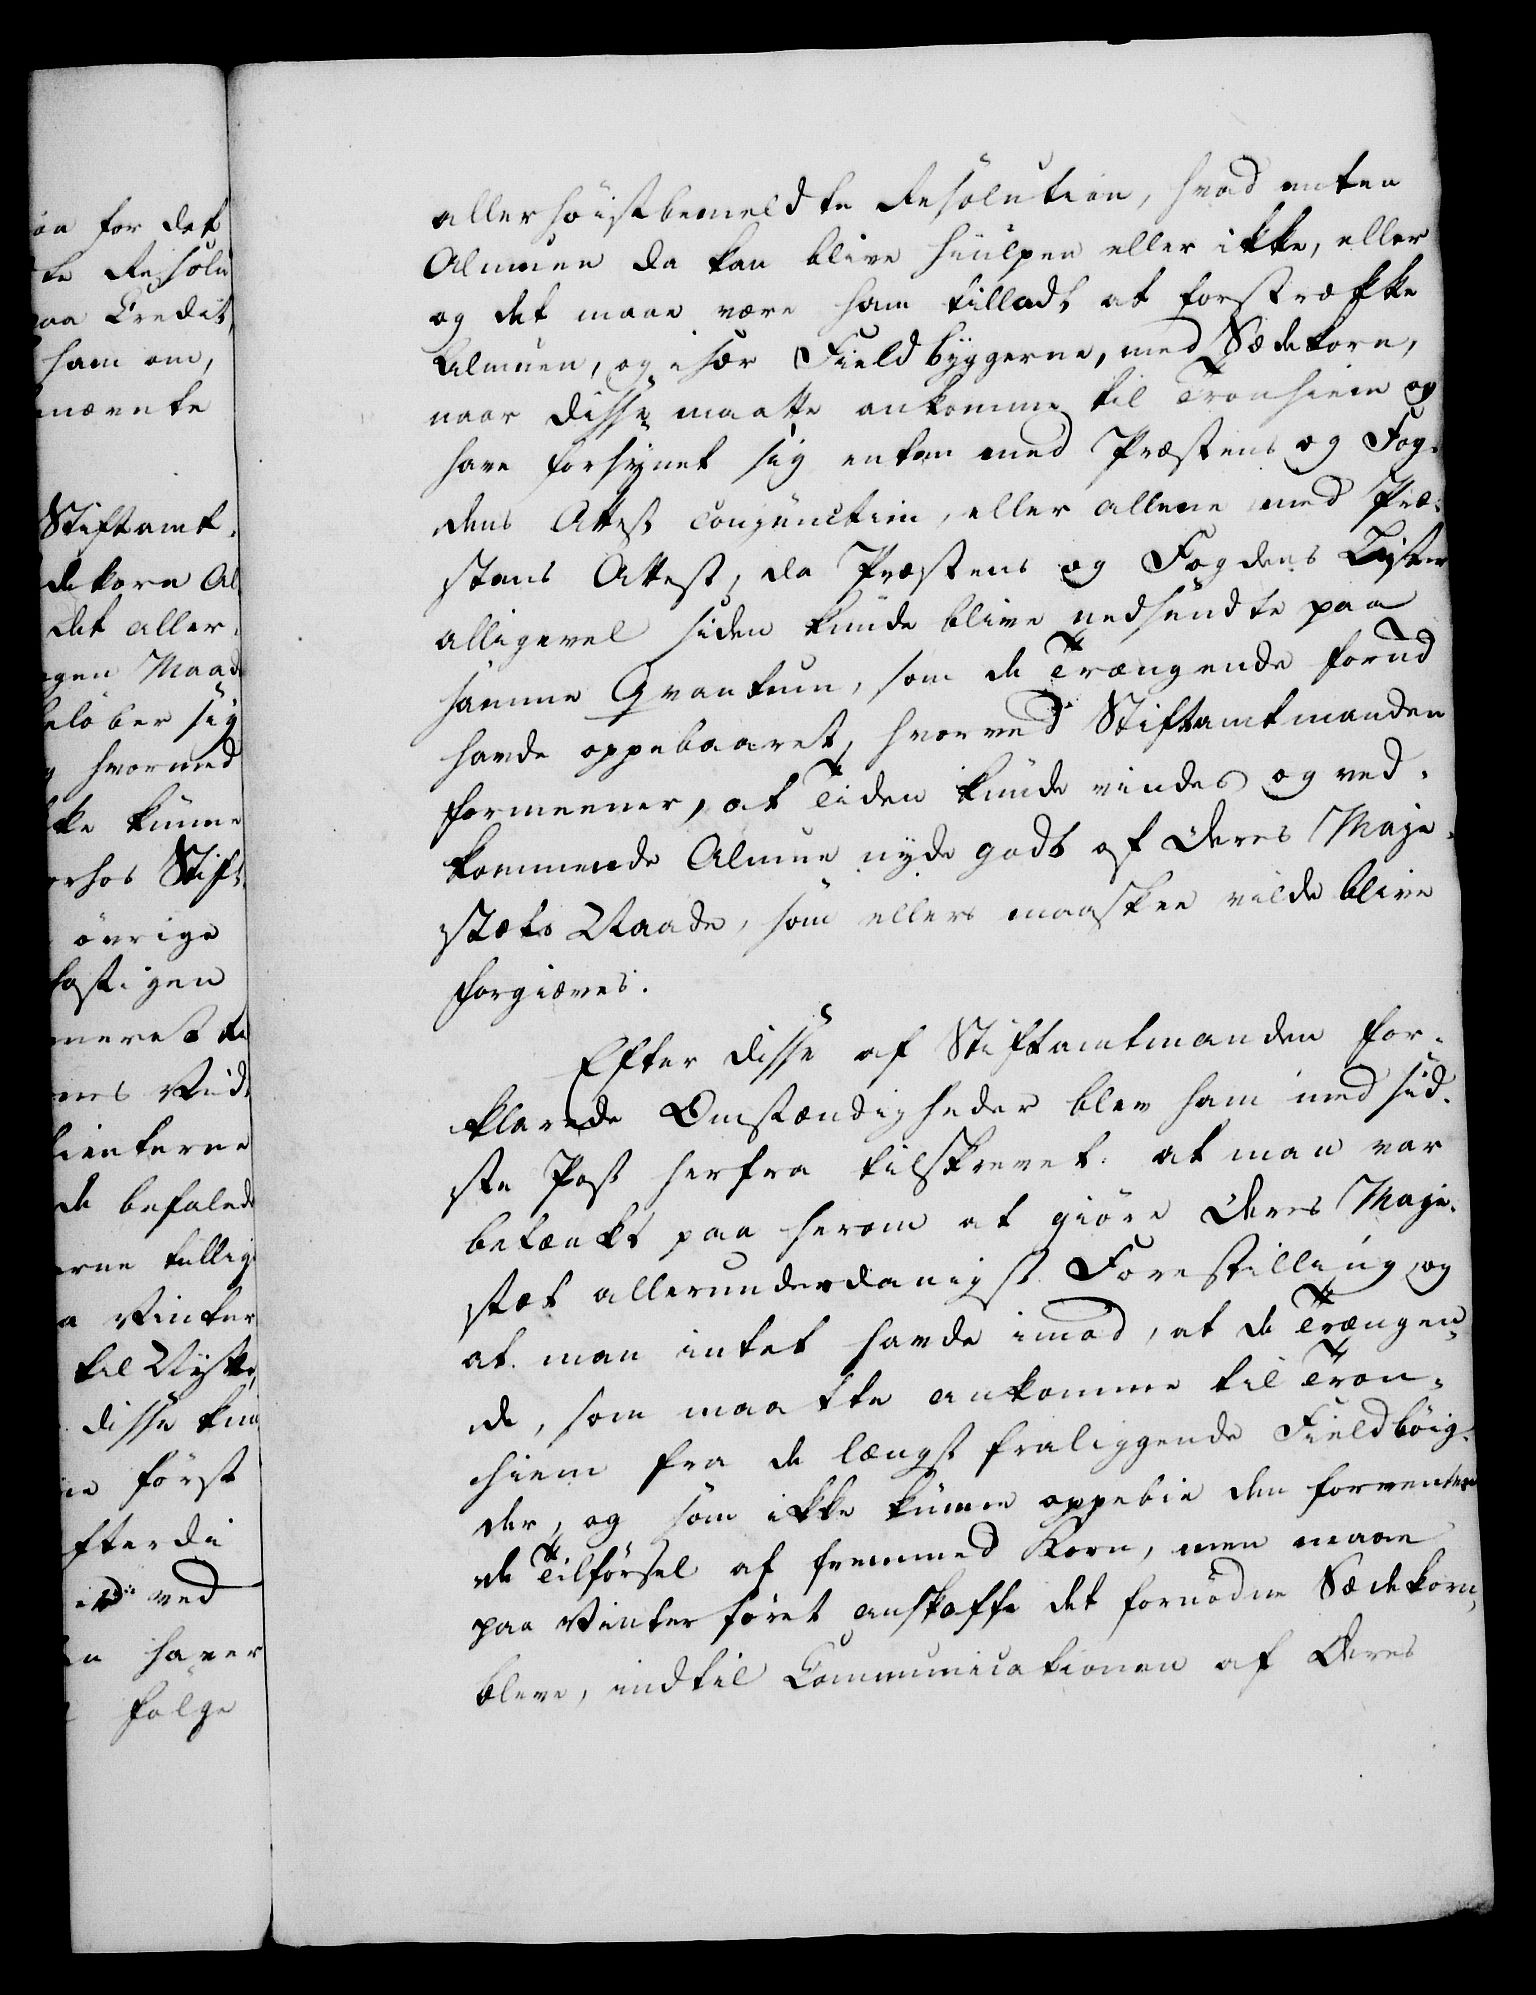 aa for det
te Resolu
paa Credit,
ham om,
nævnte
Stiftamt-
dekorn Al
det aller-
gen Maade
beløber sig
hvormed
ke kunne
erhos Stift
øvrige
hastigen
de befalede
erne tillige
a Vinter
disse kun
først
efterdi
ved
haver
følge
allerhøistbemeldte Resolution, hvad enten
Almuen da kan blive hiulpen eller ikke, eller
og det maae være ham tilladt at forstrække
Almuen, og især Fieldbyggerne, med Sædekorn,
naar disse maatte ankomme til Tronhiem og
have forsynet sig enten med Præstens og Fog-
dens Attest conjunctim, eller allene med Præ-
stens Attest, da Præstens og Fogdens Lister
alligevel siden kunde blive nedsendte paa
samme Qvantum, som de Trængende forud
havde oppebaaret, hvorved Stiftamtmanden
formeener, at Tiden kunde vindes og ved-
kommende Almue nyde godt af Deres Maje-
stæts Naade, som ellers maaskee vilde blive
forgiæves.
Efter disse af Stiftamtmanden for-
klarede Omstændigheder blev ham med sid-
ste Post herfra tilskrevet: at man var
betænkt paa herom at giöre Deres Maje-
stæt allerunderdanigst Forestilling, og
at man intet havde imod, at de Trængen-
de, som maatte ankomme til Tron-
hiem fra de længst fraliggende Fieldböig-
der, og som ikke kunne oppebie den forventen-
de Tilförsel af fremmed Korn, men maae
paa Vinterföret anskaffe det fornödne Sædekorn,
bleve, indtil Communicationen af Deres